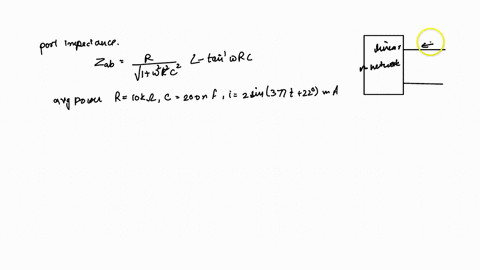 port impedance.
Zab = R / √1+ω²R²C² ∠-tan⁻¹ωRC
avg power R=10kΩ, C=200nf, i=2sin(377t+22°) mA
linear
network